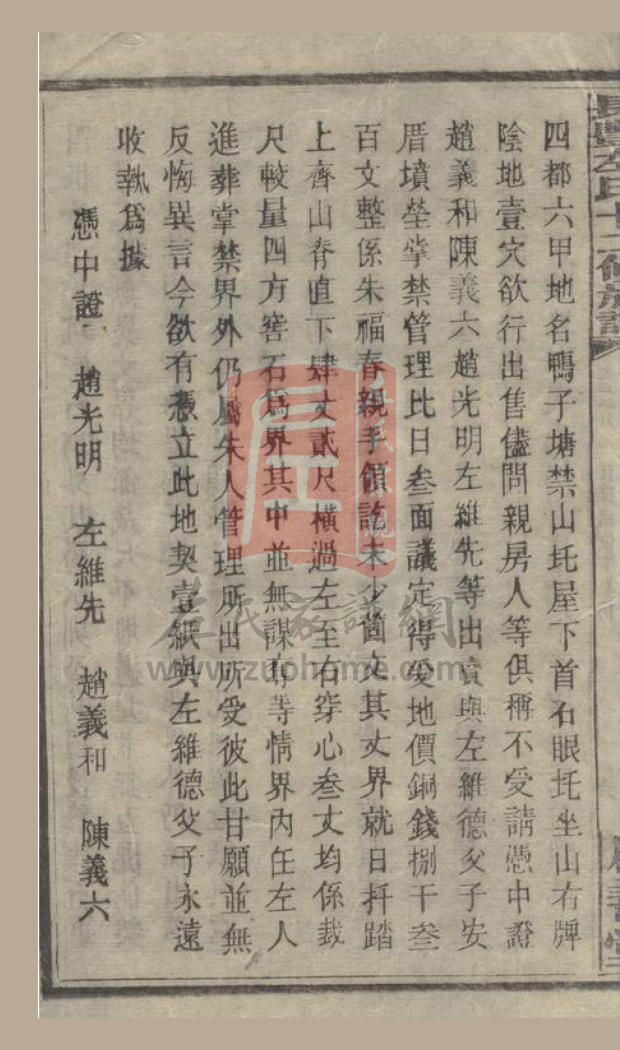 長豐左氏十二修族譜
四都六甲地名鴨子塘禁山圫屋下首石眼圫坐山右牌
陰地壹穴欲行出售儘問親房人等俱稱不受請憑中證
趙義和陳義六趙光明左維先等出賣與左維德父子安
厝墳塋掌禁管理比日叁面議定得受地價銅錢捌千叁
百文整係朱福春親手領訖未少箇文其丈界就日扦踏
上齊山脊直下肆丈貳尺橫過左至右穿心叁丈均係裁
尺較量四方窖石爲界其中並無謀有等情界內任左人
進葬掌禁界外仍屬朱人管理所出所受彼此甘願並無
反悔異言今欲有憑立此地契壹紙與左維德父子永遠
收執爲據
憑中證 趙光明 左維先 趙義和 陳義六
左氏族譜網
www.zuohome.com